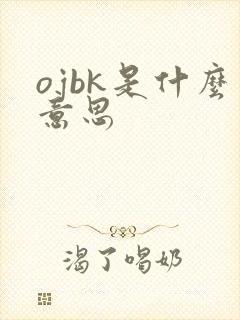 ojbk是什麼
意思
渴了喝奶